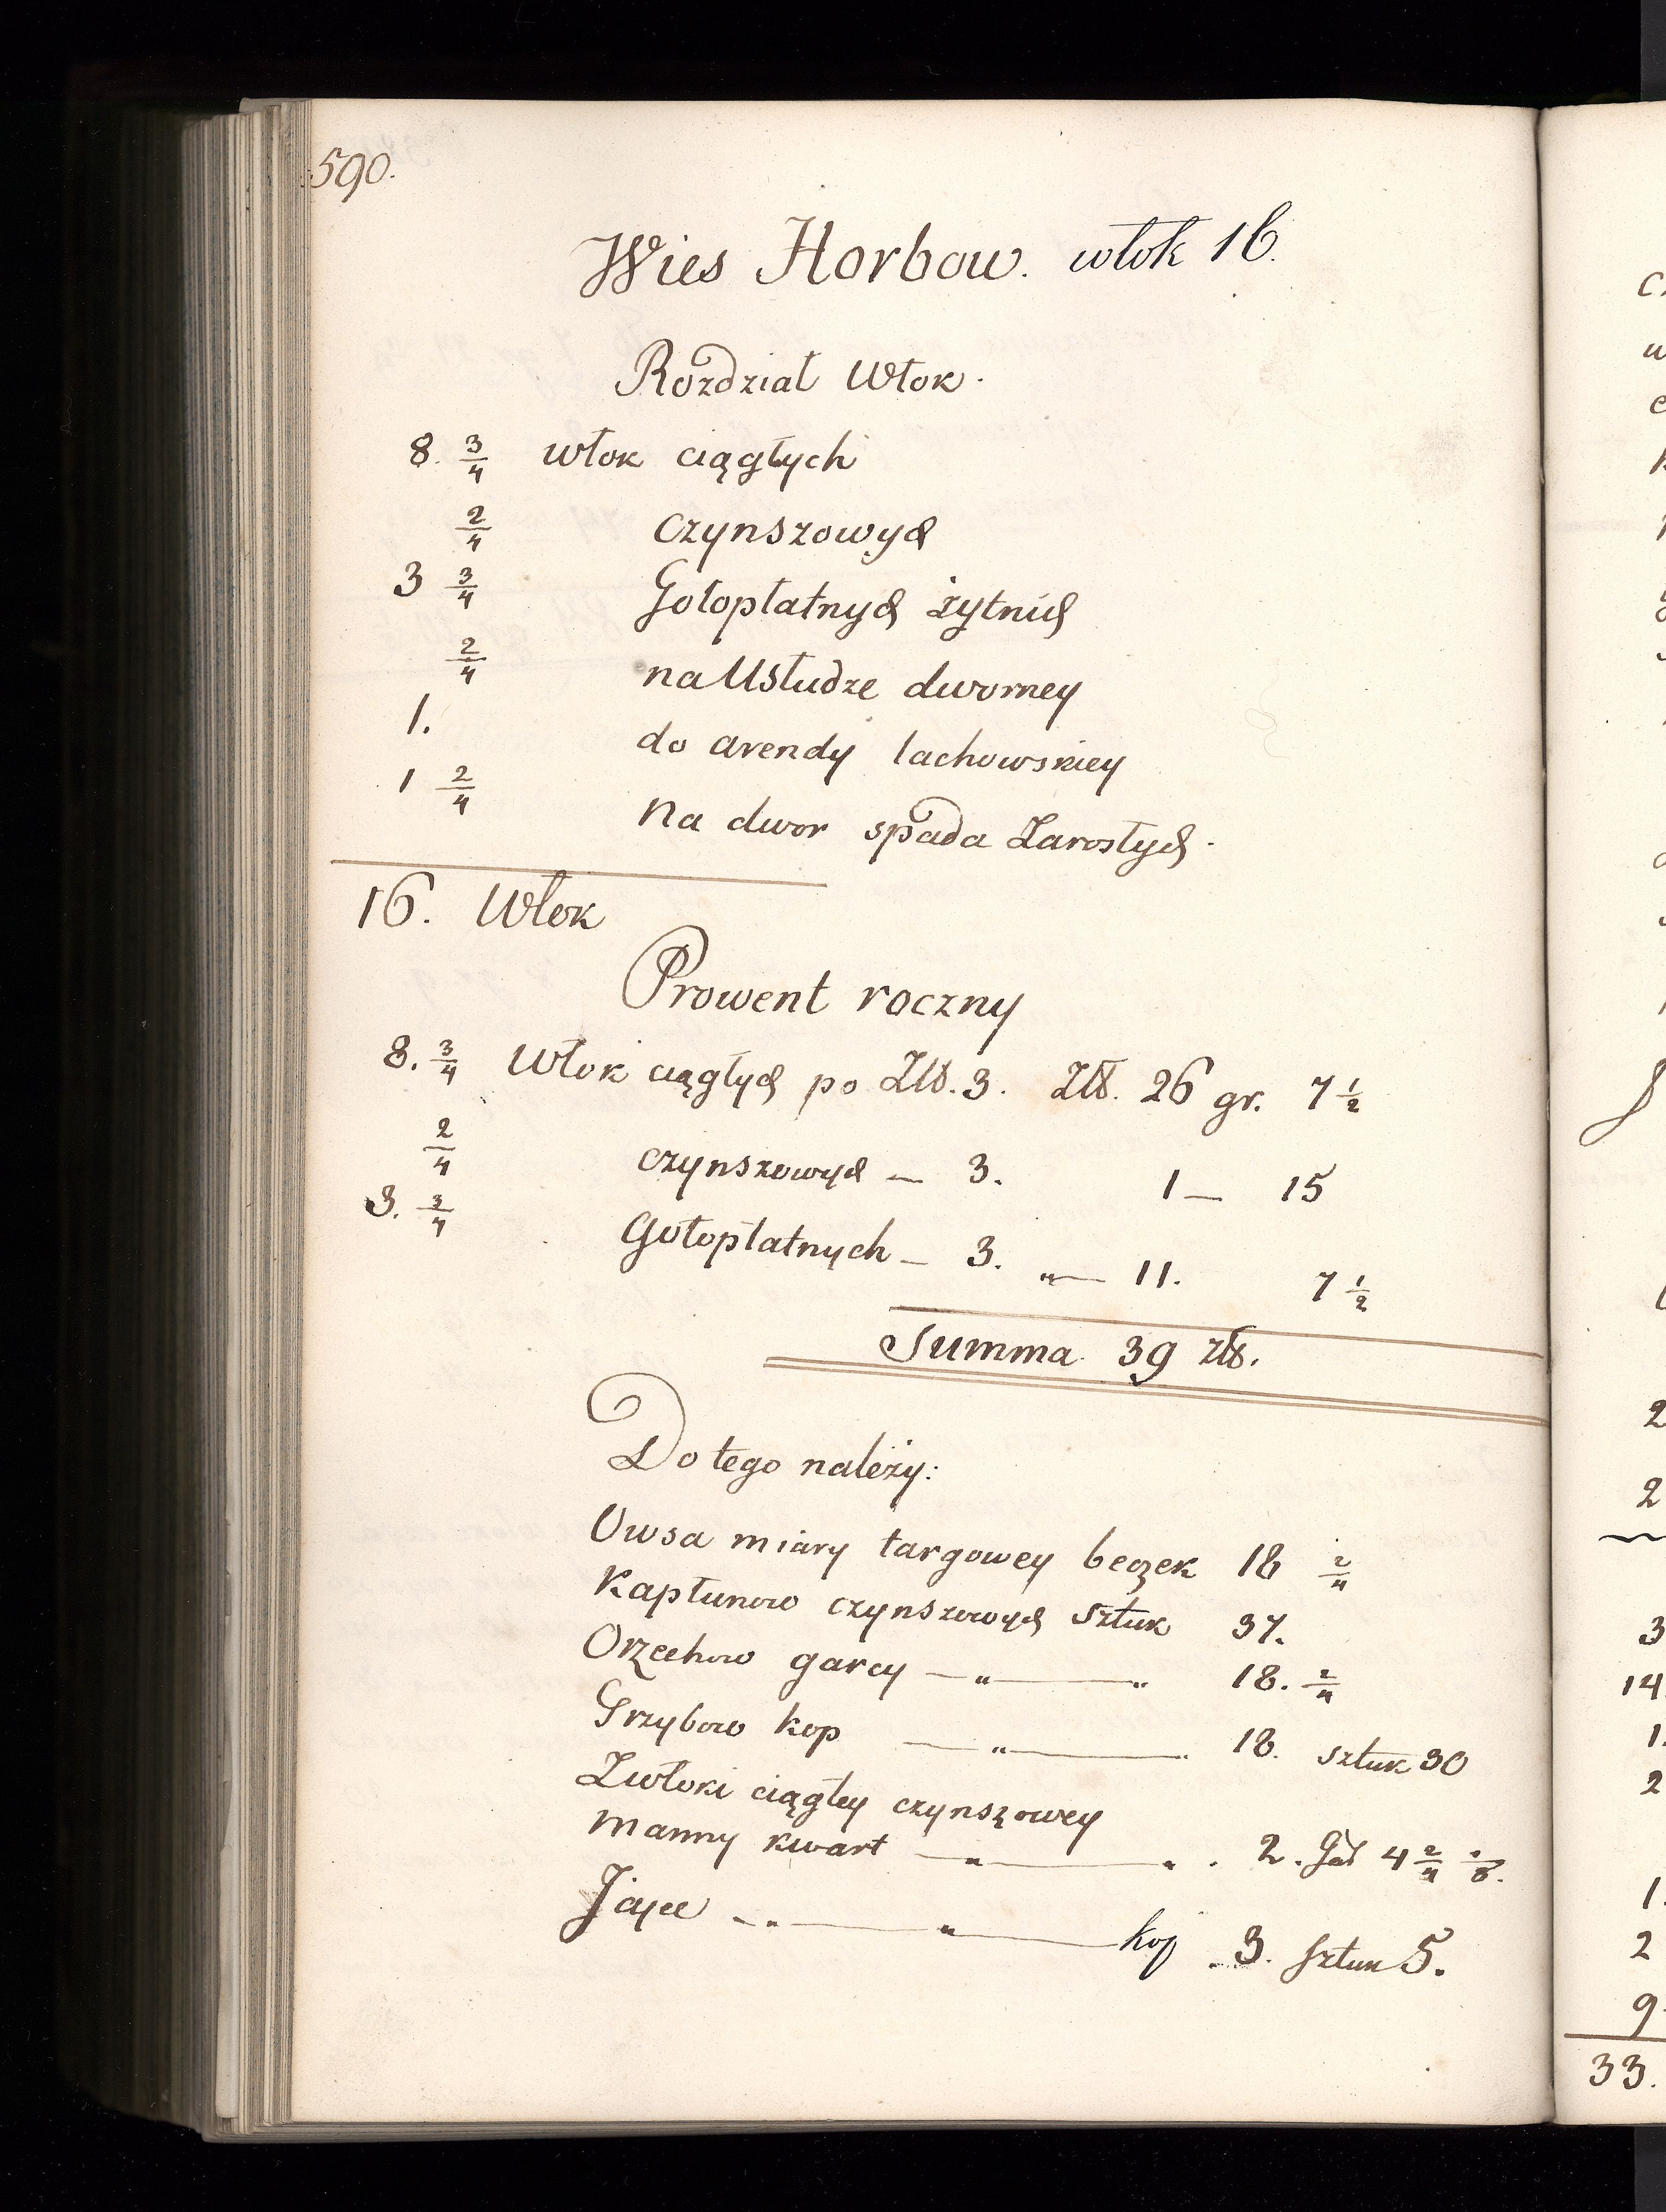 590.
Wies Horbow. włok 16.
Rozdział Włok.
8. 3/4 włok ciągłych
2/4 czynszowych
3 3/4 Gołopłatnych żytnich
2/4 na Usłudze dworney
1. do arendy lachowskiey
1 2/4 Na dwor spada Zarosłych.
16. Włok
Prowent roczny
8. 3/4 Włok ciągłych po Złł. 3. Złł. 26 gr. 7 1/2
2/4 czynszowych — 3. 1 — 15
3. 3/4 Gołopłatnych — 3. „— 11. 7 1/2
Summa 39 złł.
Do tego należy:
Owsa miary targowey beczek 18 2/4
Kapłunow czynszowych Sztuk 37.
Orzechow garcy —„— „ 18. 2/4
Grzybow kop —„— 18. sztuk 30
Zwłoki ciągłey czynszowey
manny kwart —„— „ . 2. 4 2/4
Jajec -„—„— kop . 3. Sztuk 5.